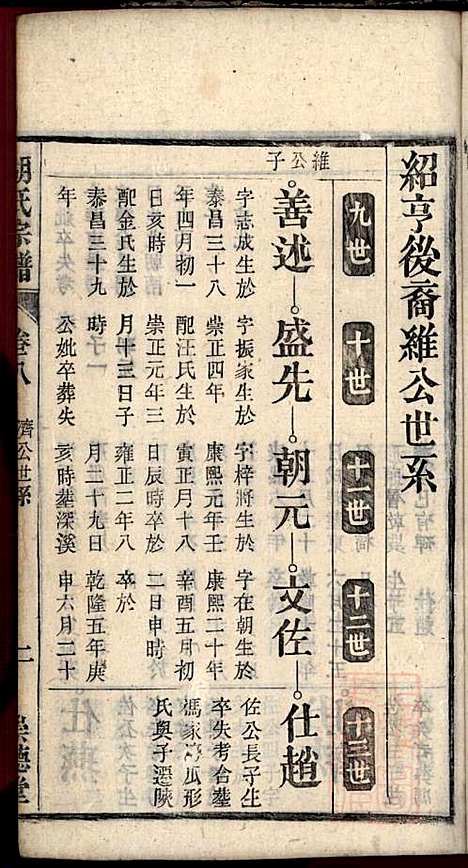 紹亨後裔維公世系
九世
十世
十一世
十二世
十三世
維公子
善述
盛先
朝元
文佐
仕趙
字志成生於
泰昌三十八
年四月初一
日亥時
配金氏生於
泰昌三十九
年
字振家生於
崇正四年
配汪氏生於
崇正元年三
月十三日子
時
公妣卒葬失
字梓將生於
康熙元年壬
寅正月十八
日辰時卒於
雍正二年八
月二十九日
亥時塟深溪
字在朝生於
康熙二十年
辛酉五月初
二日申時
卒於
乾隆五年庚
申六月二十
佐公長子生
卒失考合塟
馮家灣瓜形
氏與子遷陝
胡氏宗譜
卷八
濟公世系
二
崇德堂